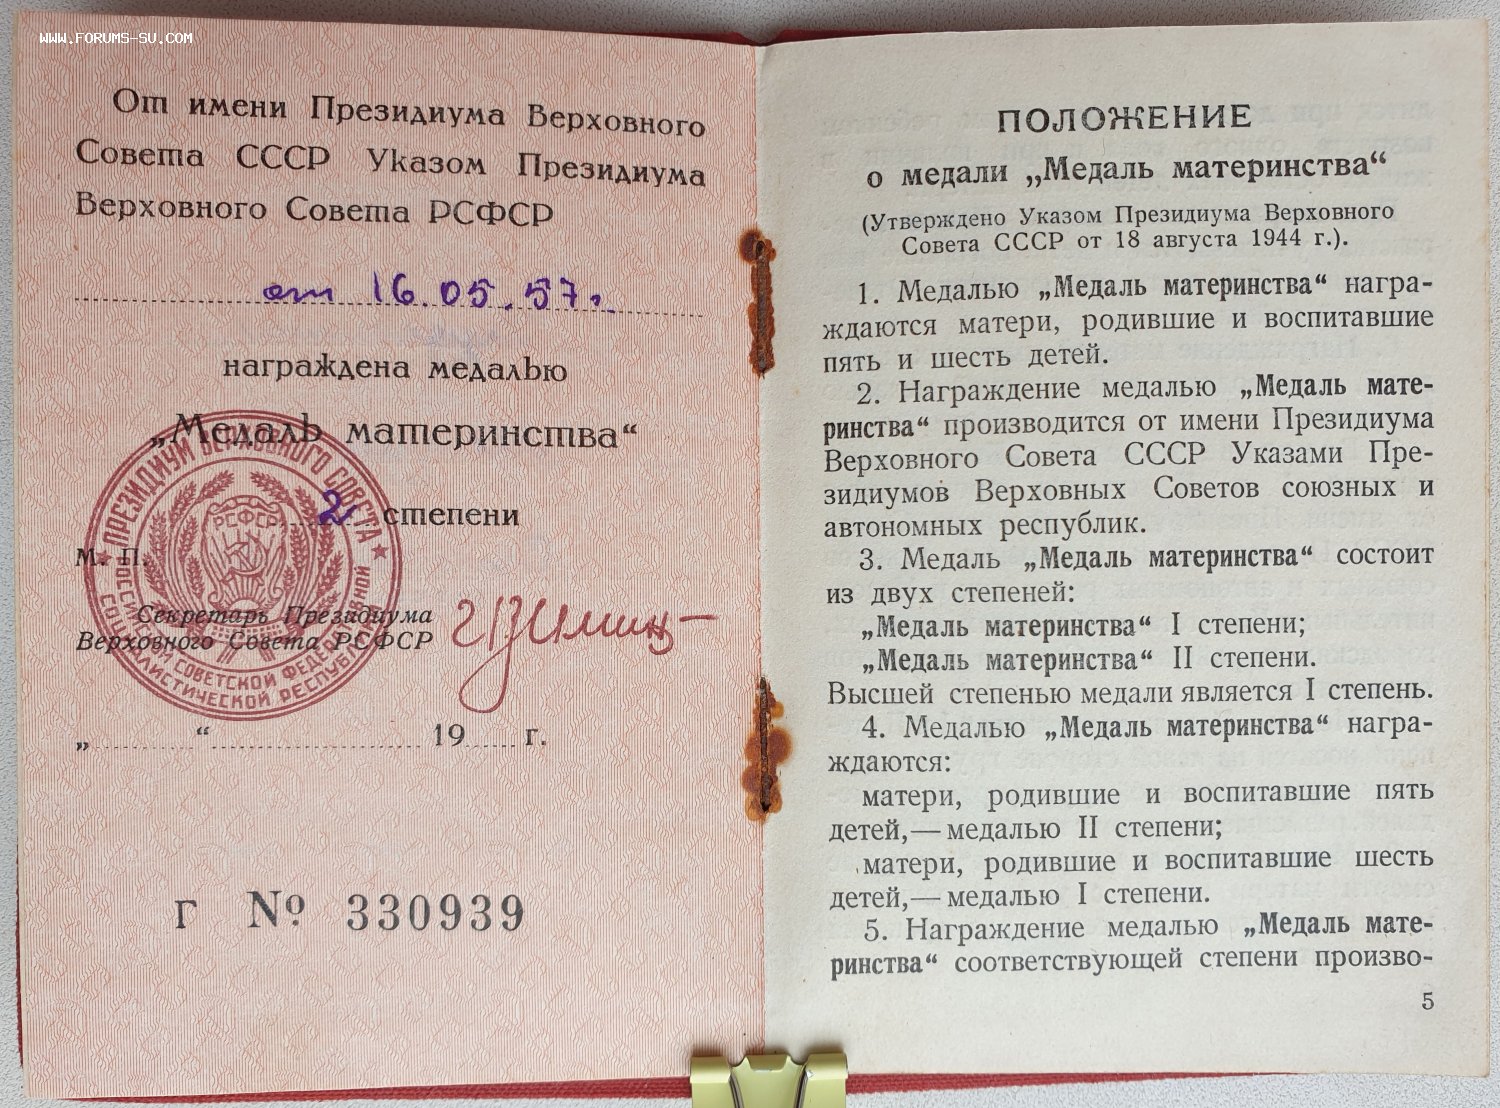 WWW.FORUMS-SU.COM
От имени Президиума Верховного
Совета СССР Указом Президиума
Верховного Совета РСФСР
от 16.05.57г.
награждена медалью
„Медаль материнства“
2 степени
М. П.
Секретарь Президиума
Верховного Совета РСФСР
ПРЕЗИДИУМ ВЕРХОВНОГО СОВЕТА
РОССИЙСКОЙ СОВЕТСКОЙ ФЕДЕРАТИВНОЙ
СОЦИАЛИСТИЧЕСКОЙ РЕСПУБЛИКИ
РСФСР
„ “ 19 г.
Г № 330939
ПОЛОЖЕНИЕ
о медали „Медаль материнства“
(Утверждено Указом Президиума Верховного
Совета СССР от 18 августа 1944 г.).
1. Медалью „Медаль материнства“ награ-
ждаются матери, родившие и воспитавшие
пять и шесть детей.
2. Награждение медалью „Медаль мате-
ринства“ производится от имени Президиума
Верховного Совета СССР Указами Пре-
зидиумов Верховных Советов союзных и
автономных республик.
3. Медаль „Медаль материнства“ состоит
из двух степеней:
„Медаль материнства“ I степени;
„Медаль материнства“ II степени.
Высшей степенью медали является I степень.
4. Медалью „Медаль материнства“ награ-
ждаются:
матери, родившие и воспитавшие пять
детей,— медалью II степени;
матери, родившие и воспитавшие шесть
детей,— медалью I степени.
5. Награждение медалью „Медаль мате-
ринства“ соответствующей степени произво-
5